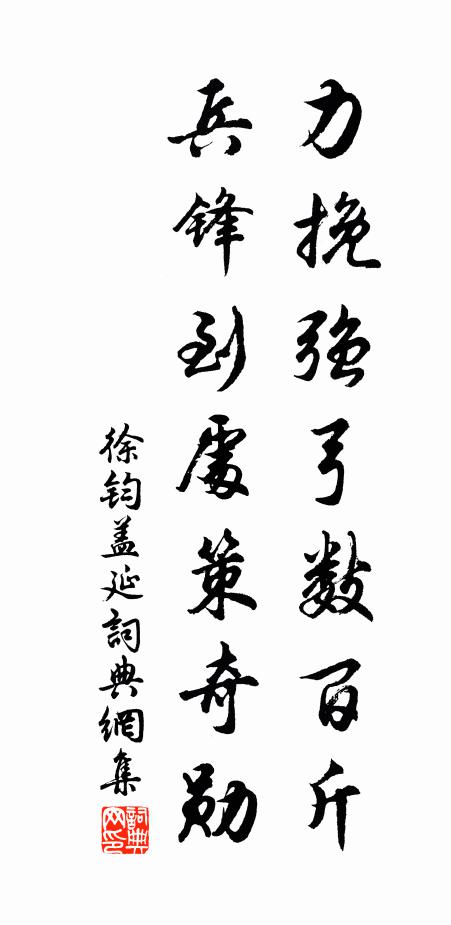 力挽强弓数百斤
兵锋到處策奇勋
徐钧盖延詞典網集
詞典网印